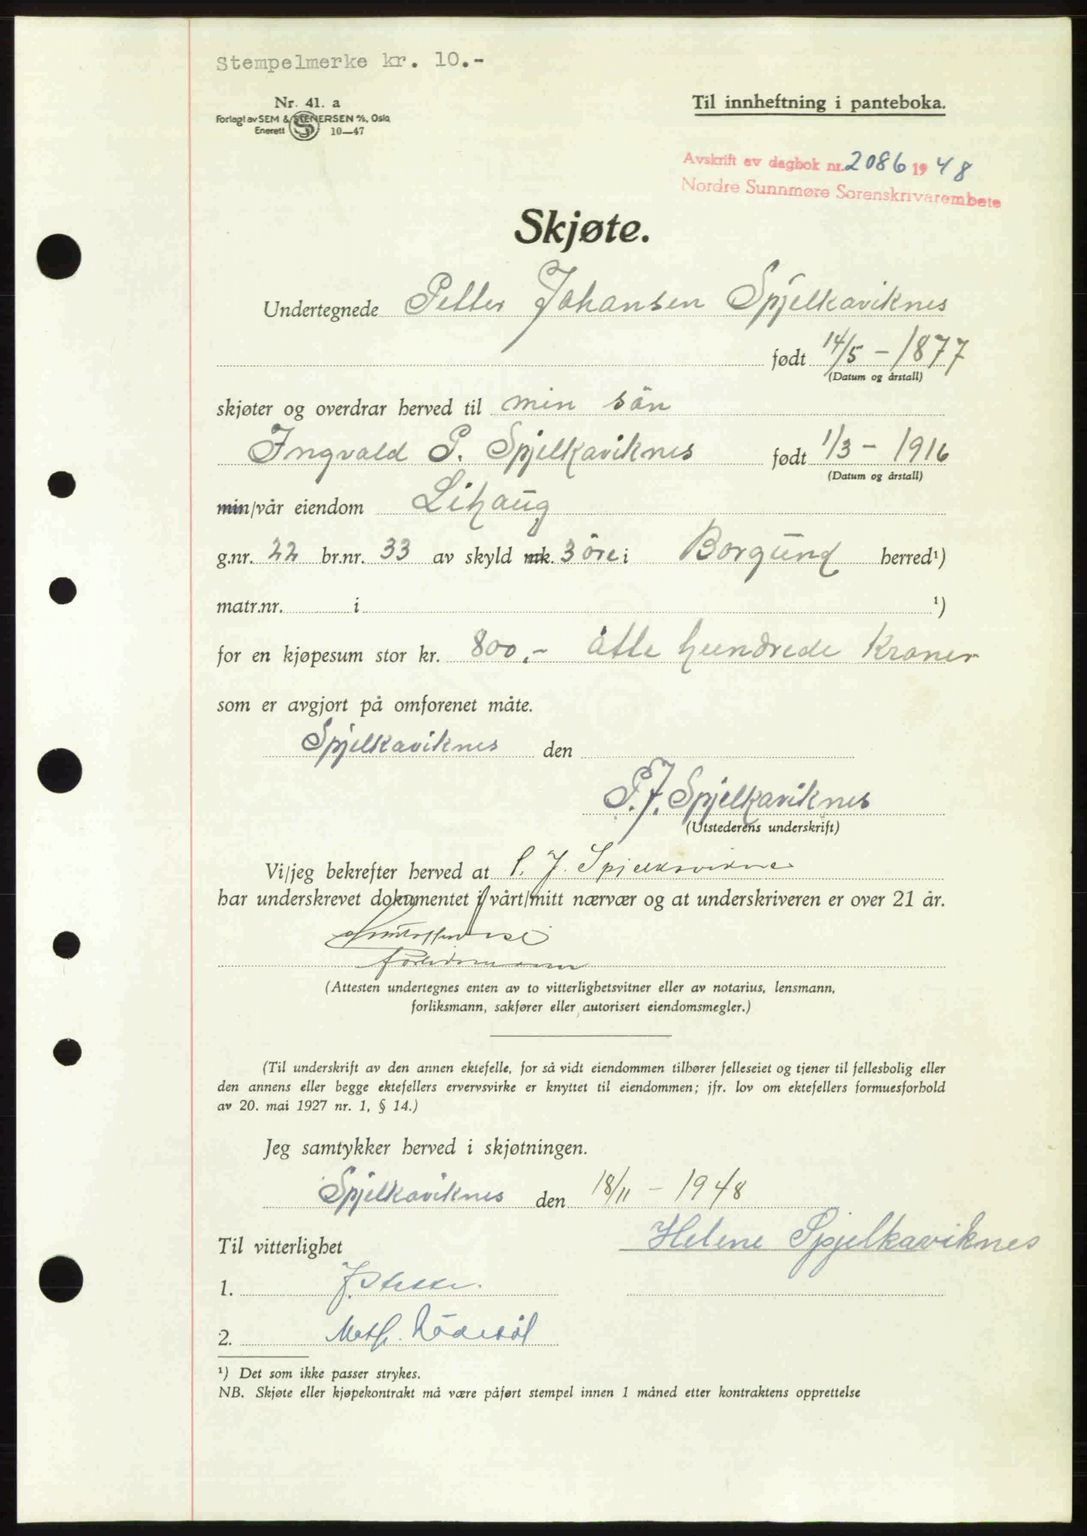 Stempelmerke kr. 10.-
Nr. 41. a
Forlagt av SEM & STENERSEN A/S, Oslo
Enerett 10—47
Til innheftning i panteboka.
Avskrift av dagbok nr. 2086 1948
Nordre Sunnmøre Sorenskrivarembete
Skjøte.
Undertegnede Petter Johansen Spjelkaviknes
født 14/5 - 1877
(Datum og årstall)
skjøter og overdrar herved til min sön
Ingvald P. Spjelkaviknes født 1/3 - 1916
(Datum og årstall)
min/vår eiendom Lihaug
g.nr. 22 br.nr. 33 av skyld mk. 3 öre i Borgund herred¹)
matr.nr. i ¹)
for en kjøpesum stor kr. 800,- åtte hundrede Kroner
som er avgjort på omforenet måte.
Spjelkaviknes den
P. J. Spjelkaviknes
(Utstederens underskrift)
Vi/jeg bekrefter herved at P. J. Spjelkaviknes
har underskrevet dokumentet i vårt/mitt nærvær og at underskriveren er over 21 år.
forliksmann
(Attesten undertegnes enten av to vitterlighetsvitner eller av notarius, lensmann,
forliksmann, sakfører eller autorisert eiendomsmegler.)
(Til underskrift av den annen ektefelle, for så vidt eiendommen tilhører felleseiet og tjener til fellesbolig eller
den annens eller begge ektefellers ervervsvirke er knyttet til eiendommen; jfr. lov om ektefellers formuesforhold
av 20. mai 1927 nr. 1, § 14.)
Jeg samtykker herved i skjøtningen.
Spjelkaviknes den 18/11 - 1948
Helene Spjelkaviknes
Til vitterlighet
1.
2.
¹) Det som ikke passer strykes.
NB. Skjøte eller kjøpekontrakt må være påført stempel innen 1 måned etter kontraktens opprettelse